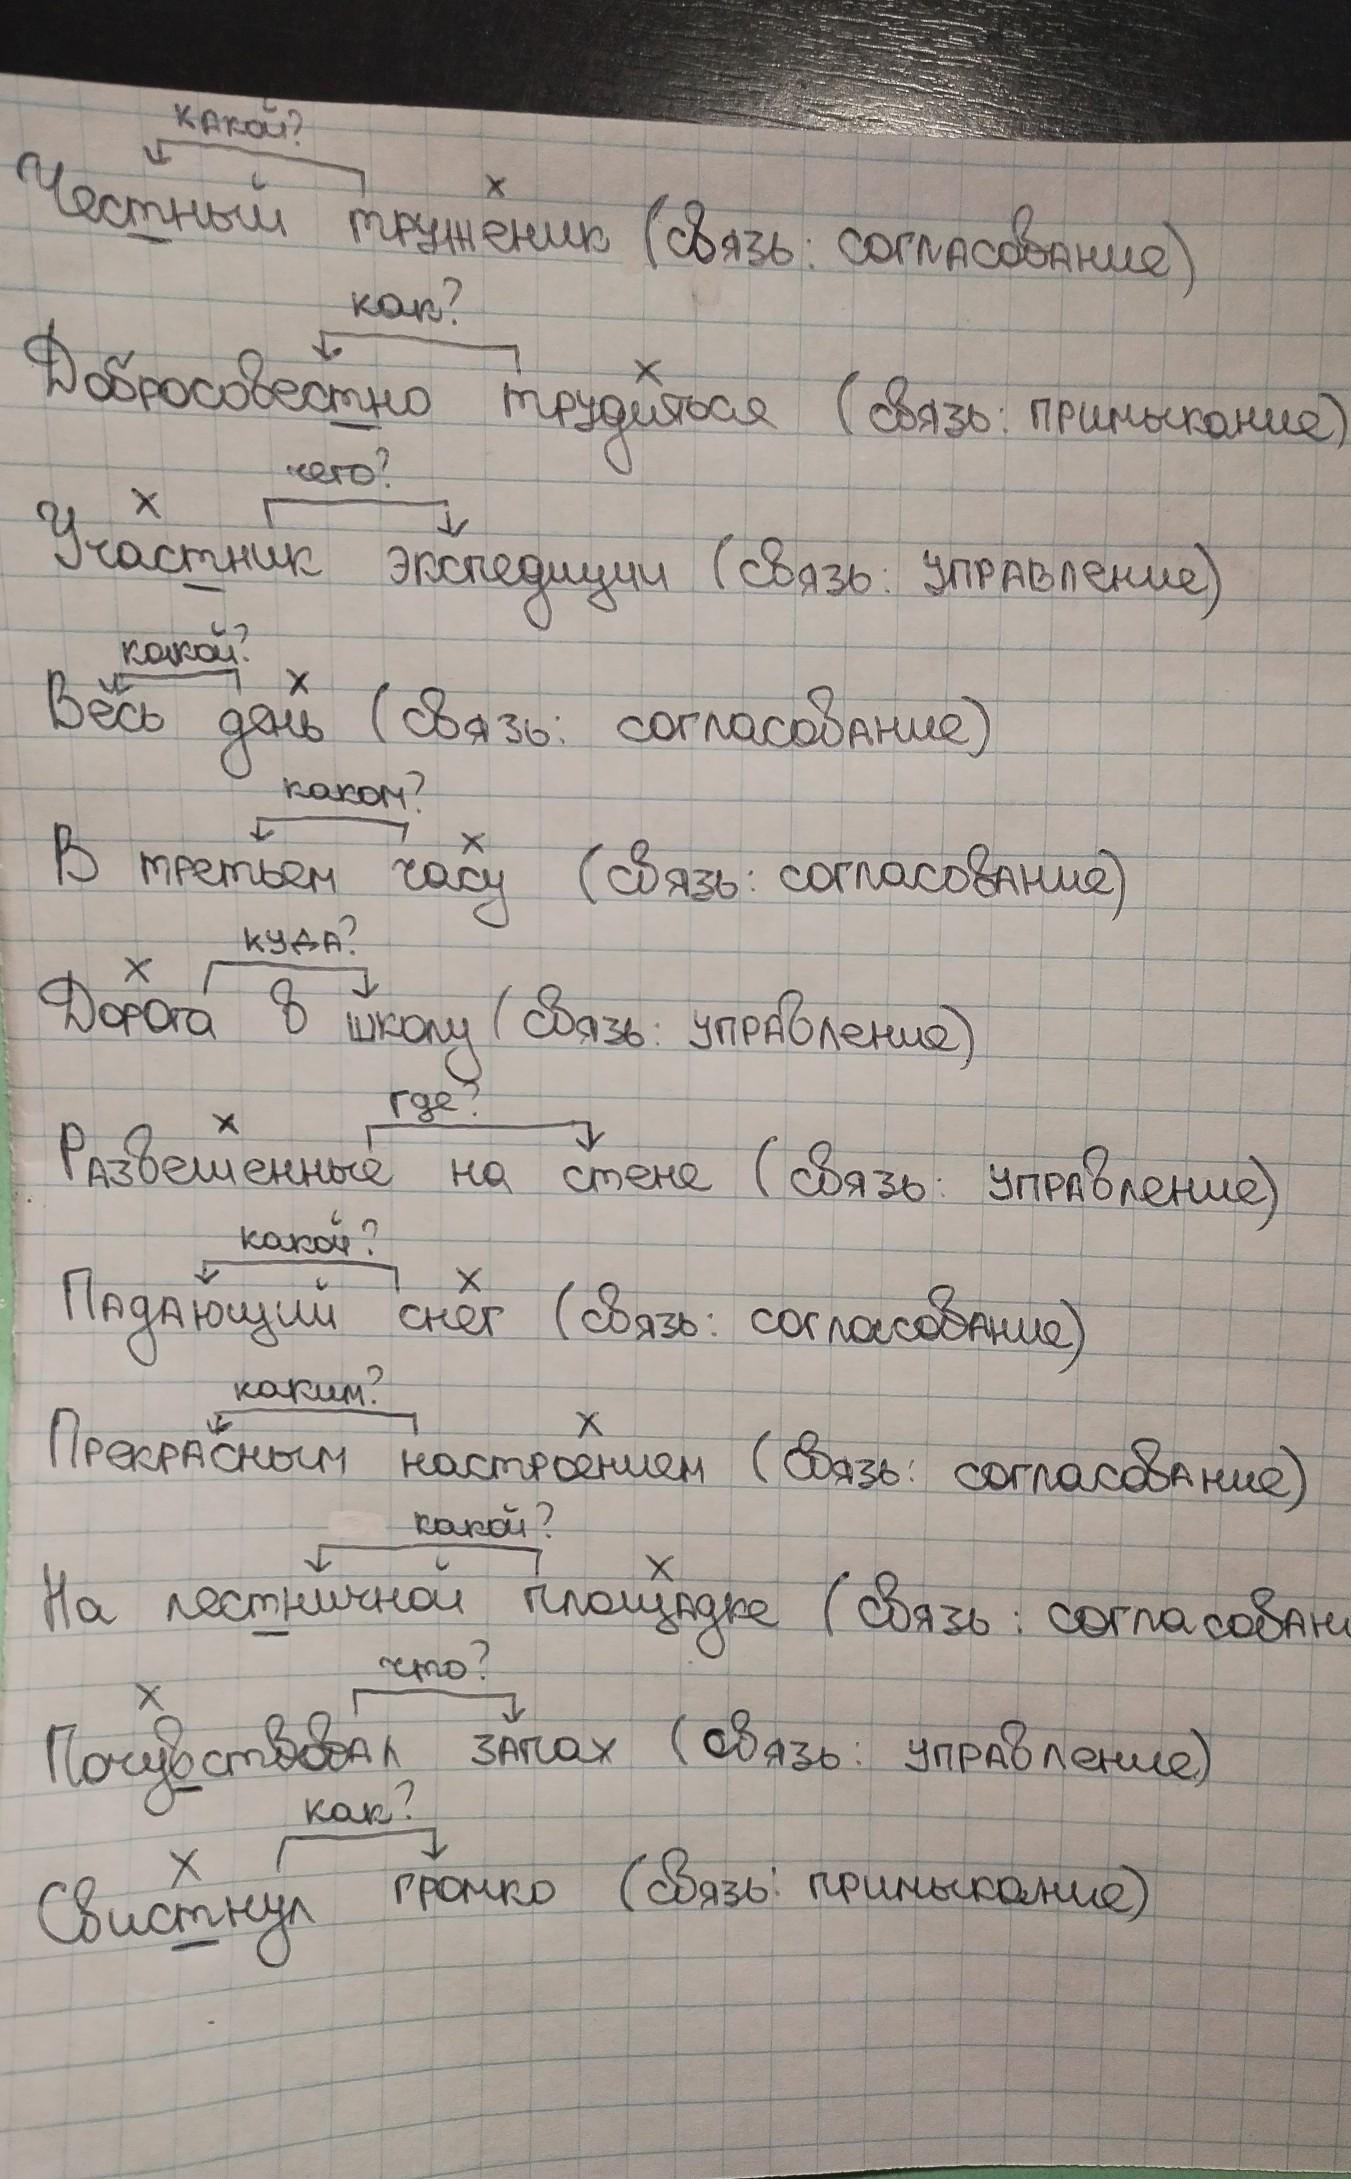 какой?
Честный труженик (связь: согласование)
как?
Добросовестно трудиться (связь: примыкание)
чего?
Участник экспедиции (связь: управление)
какой?
Весь день (связь: согласование)
каком?
В третьем часу (связь: согласование)
куда?
Дорога в школу (связь: управление)
где?
Развешенные на стене (связь: управление)
какой?
Падающий снег (связь: согласование)
каким?
Прекрасным настроением (связь: согласование)
какой?
На лестничной площадке (связь: согласован
что?
Почувствовал запах (связь: управление)
как?
Свистнул громко (связь: примыкание)